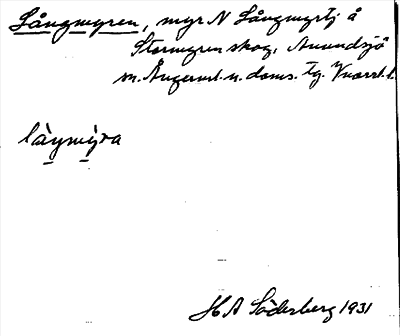 Långmyren, myr N Långmyrtj å
Stormyren skog, Anundsjö
m. Ångerml. n. doms. tg. Vnorrl. l.
làŋmỳra
H A Söderberg 1931